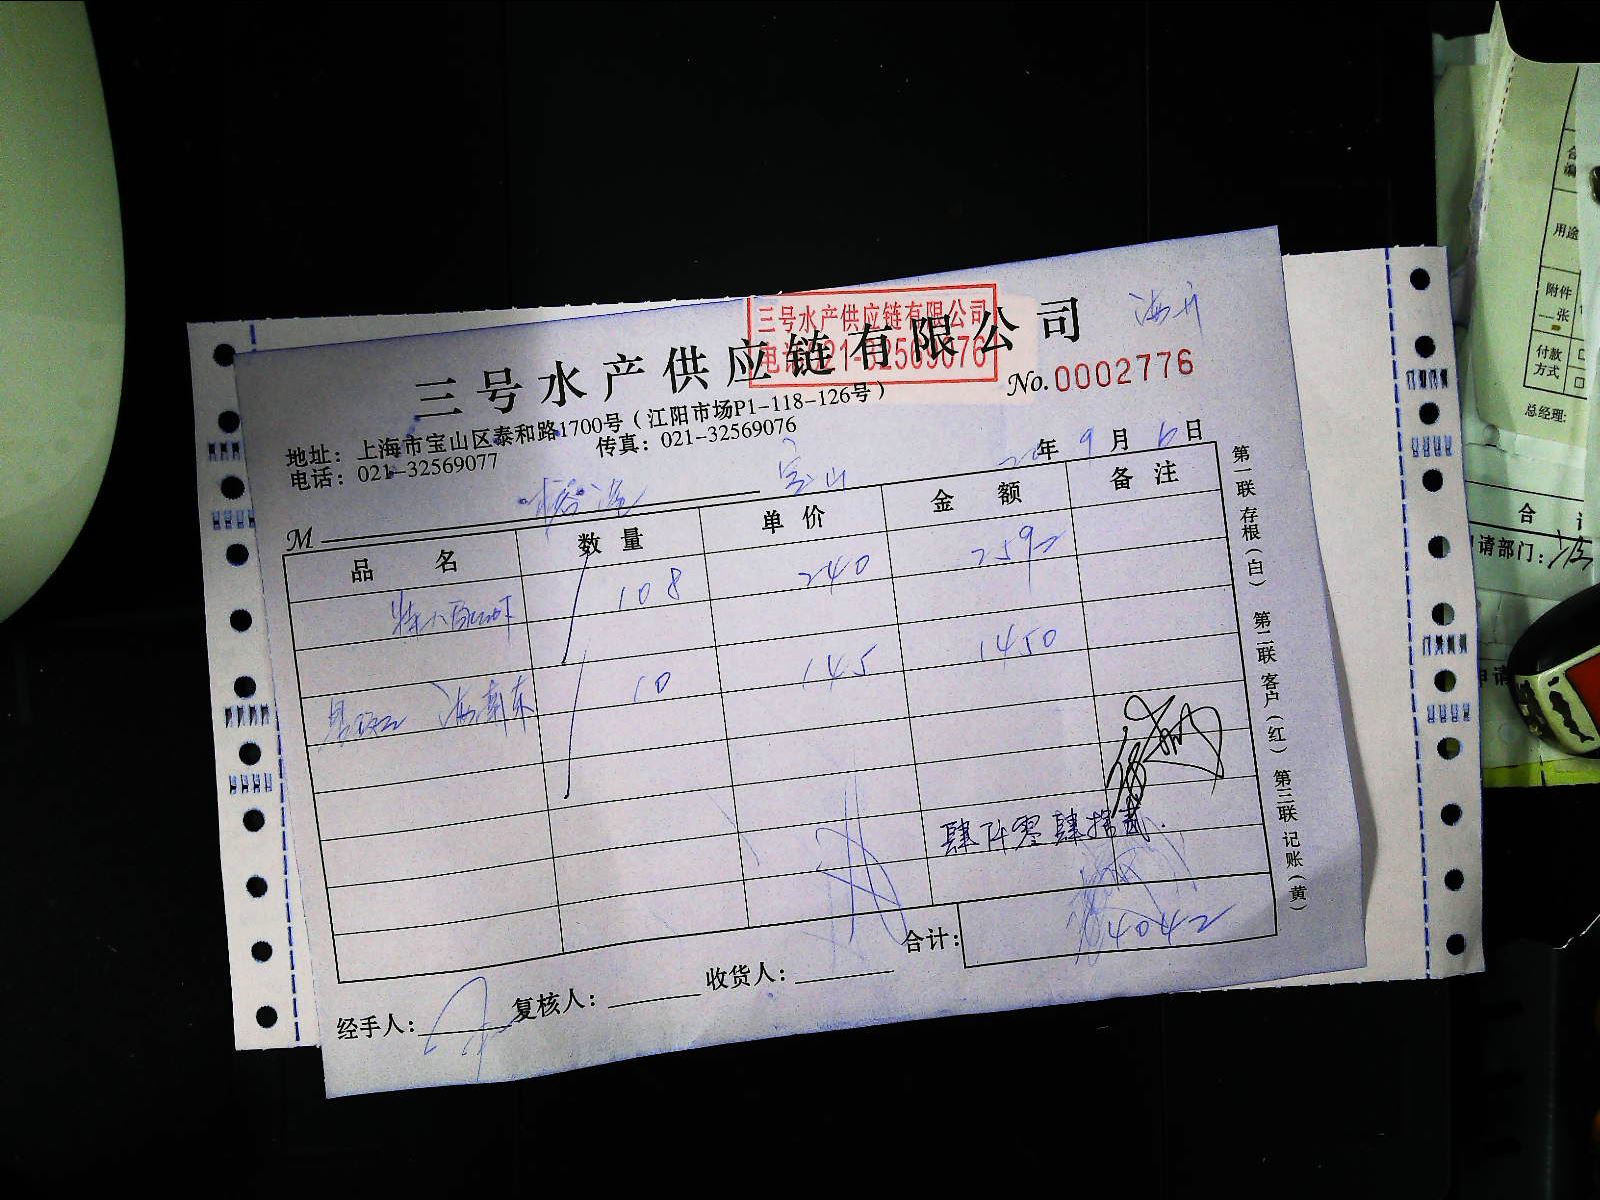 三号水产供应链有限公司
三号水产供应链有限公司
No.0002776
地址：上海市宝山区泰和路1700号（江阳市场P1-118-126号）
电话：021-32569077 传真：021-32569076
M 宝山 年 9 月 6 日
品 名 数 量 单 价 金 额 备 注
108 240 2592
海南东 10 145 1450
肆仟零肆拾贰
合计： 4042
经手人： 复核人： 收货人：
第一联 存根（白） 第二联 客户（红） 第三联 记账（黄）
用途
附件
一张
付款
方式
总经理：
合
请部门：
申请